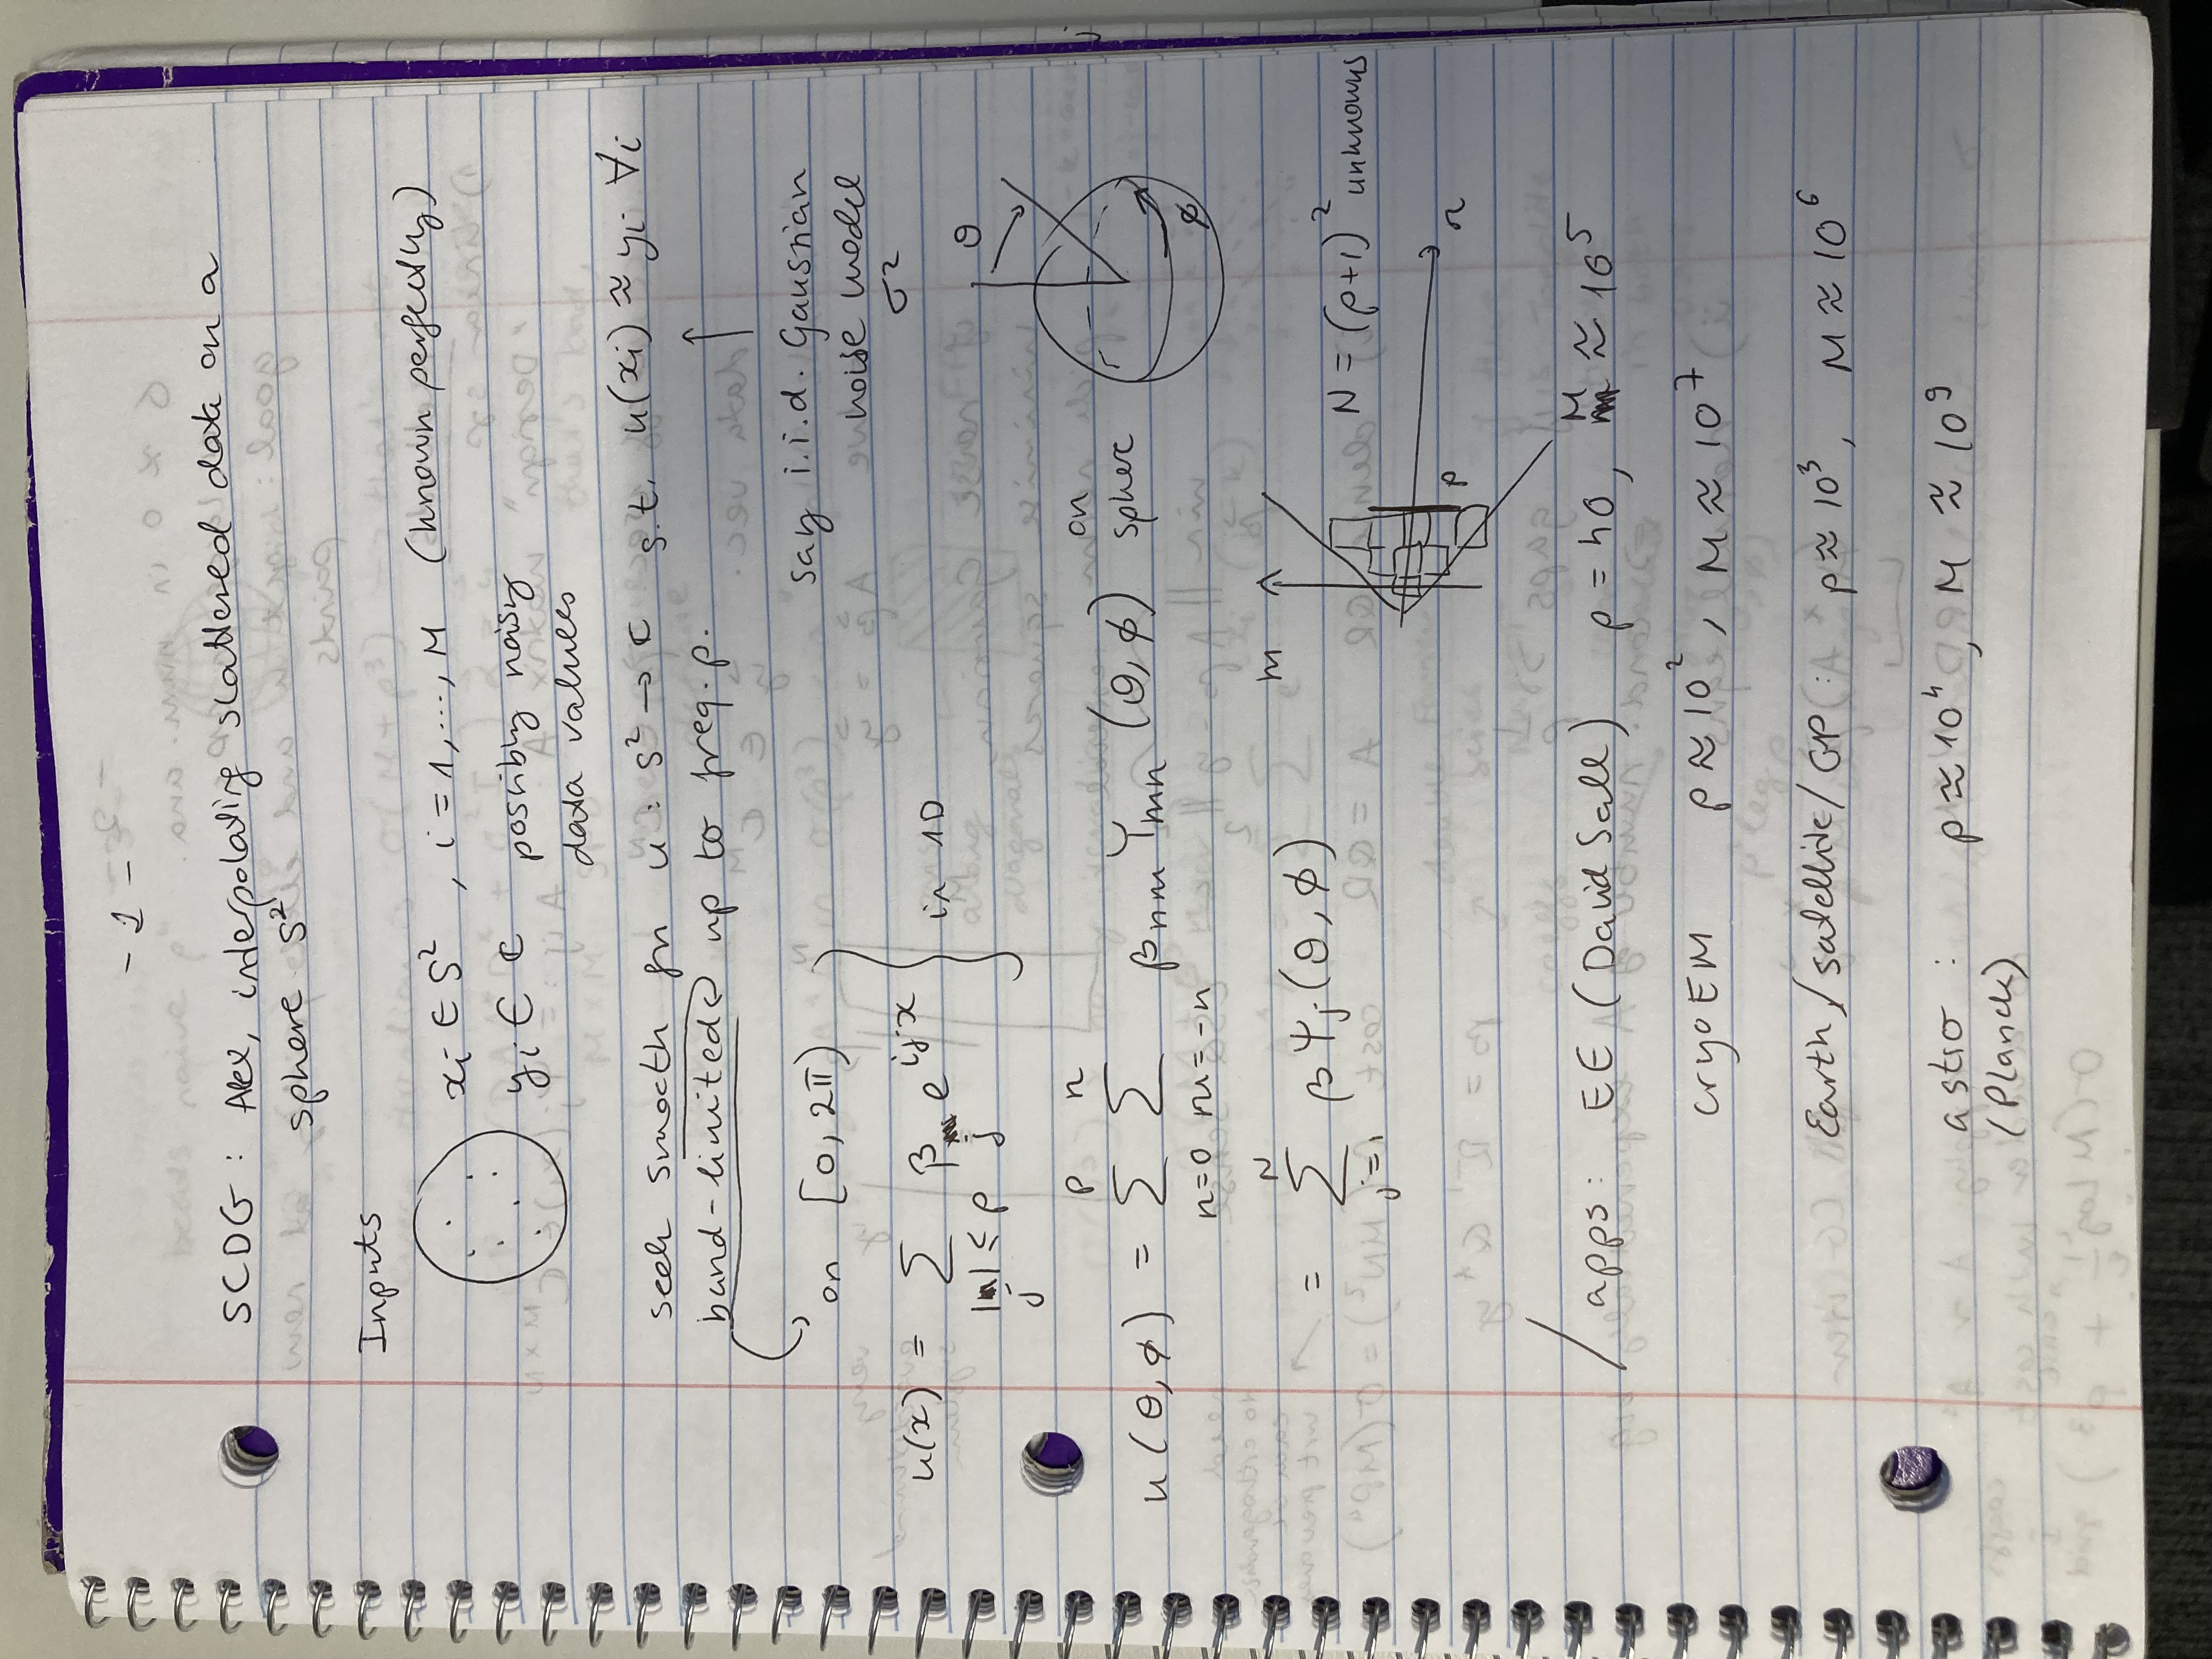 - 1 -
SCDG : Alex, interpolating scattered data on a
sphere S²
Inputs
xᵢ ∈ S² , i = 1, ..., M (known perfectly)
yᵢ ∈ ℂ possibly noisy
data values
seek smooth fn u : S² → ℂ s.t. u(xᵢ) ≈ yᵢ ∀i
band-limited up to freq. p.
↑
on [0, 2π)
say i.i.d. Gaussian
noise model
σ²
u(x) = ∑_{|j| ≤ p} β_j e^{ijx} } in 1D
θ
u(θ,φ) = ∑_{n=0}^{p} ∑_{m=-n}^{n} β_{nm} Y_{mn} (θ,φ) on
sphere
φ
= ∑_{j=1}^{N} β Ψ_j (θ,φ)
m
N = (p+1)² unknowns
p
n
/ apps: EE (David Sall) p = 40, M ≈ 10⁵
cryoEM p ≈ 10² , M ≈ 10⁷
Earth / satellite / GP : p ≈ 10³, M ≈ 10⁶
astro : p ≈ 10⁴, M ≈ 10⁹
(Planck)